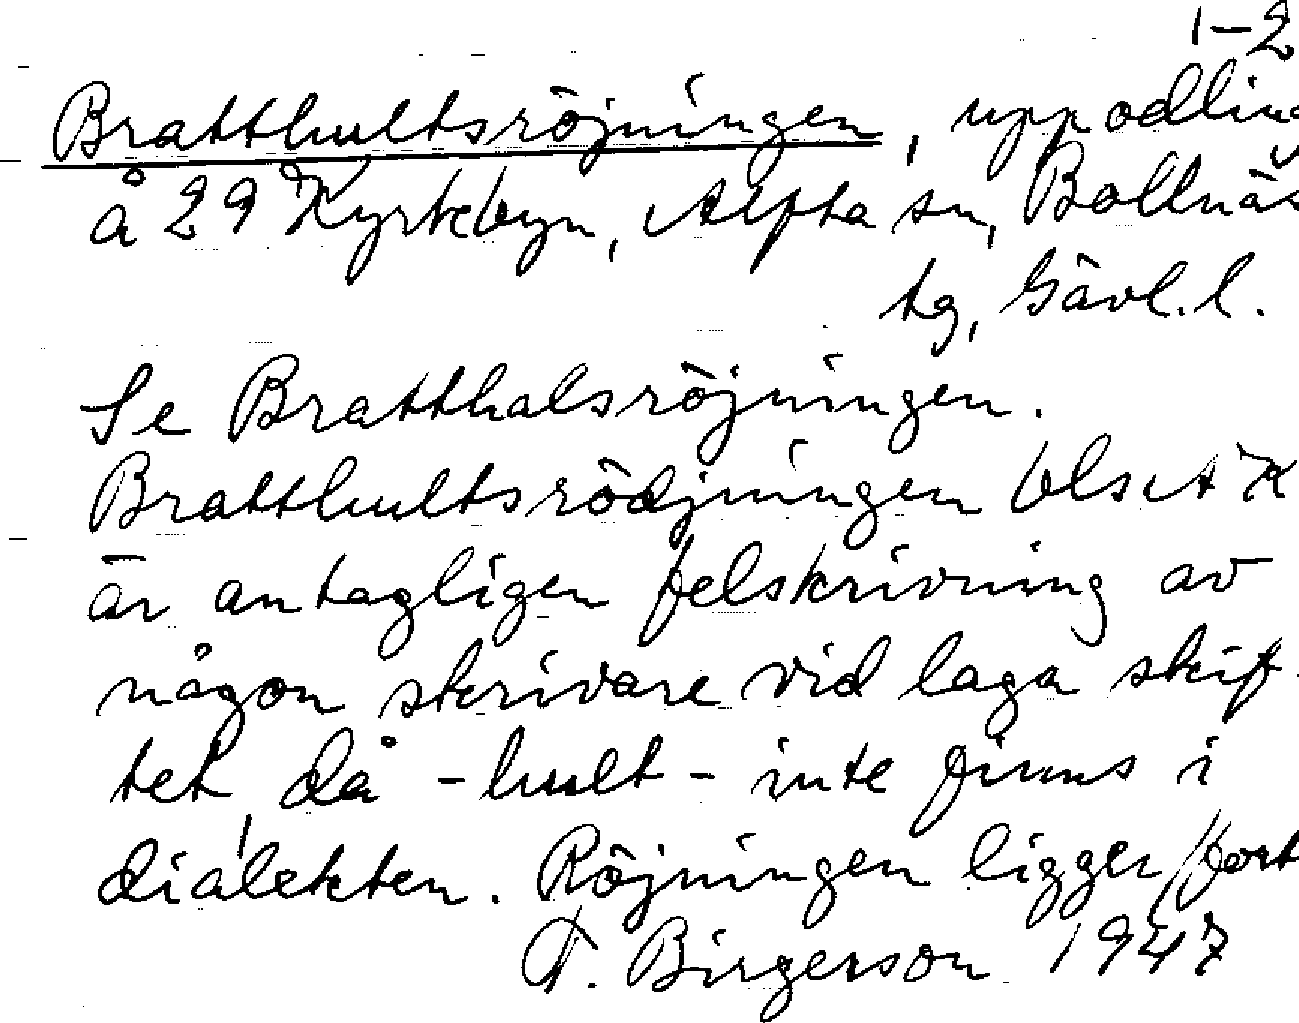 1-2
Bratthultsröjningen, uppodling
å 29 Kyrkbyn, Alfta sn, Bollnäs
tg, Gävl.l.
Se Bratthalsröjningen.
Bratthultsrödjningen
är antagligen felskrivning av
någon skrivare vid laga skif-
tet, då -hult- inte finns i
dialekten. Röjningen ligger
T. Birgerson 1947